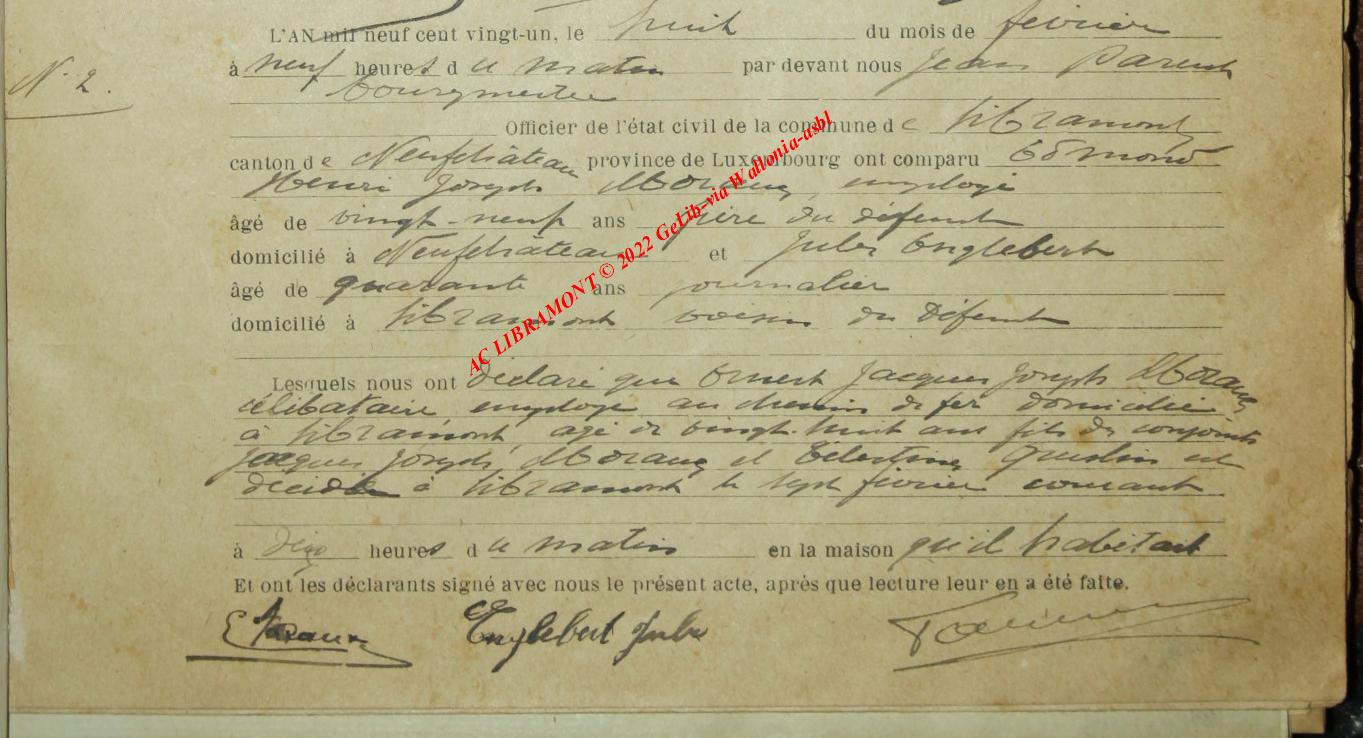 L'AN mil neuf cent vingt-un, le huit du mois de février
N. 2.
à neuf heures du matin par devant nous Jean Parent
bourgmestre
Officier de l'état civil de la commune de Libramont
canton de Neufchâteau province de Luxembourg ont comparu Edmond
Henri Joseph employé
âgé de vingt-neuf ans frère du défunt
domicilié à Neufchâteau et Jules Englebert
âgé de quarante ans journalier
domicilié à Libramont voisin du défunt
Lesquels nous ont déclaré que Ernest Jacques Joseph
célibataire employé au chemin de fer domicilié
à Libramont, âgé de vingt-huit ans fils des conjoints
Jacques Joseph et Célestine est
décédé à Libramont le sept février courant
à dix heures du matin en la maison qu'il habitait
Et ont les déclarants signé avec nous le présent acte, après que lecture leur en a été faite.
Englebert Jules
AC LIBRAMONT © 2022 GeLib-via Wallonia-asbl